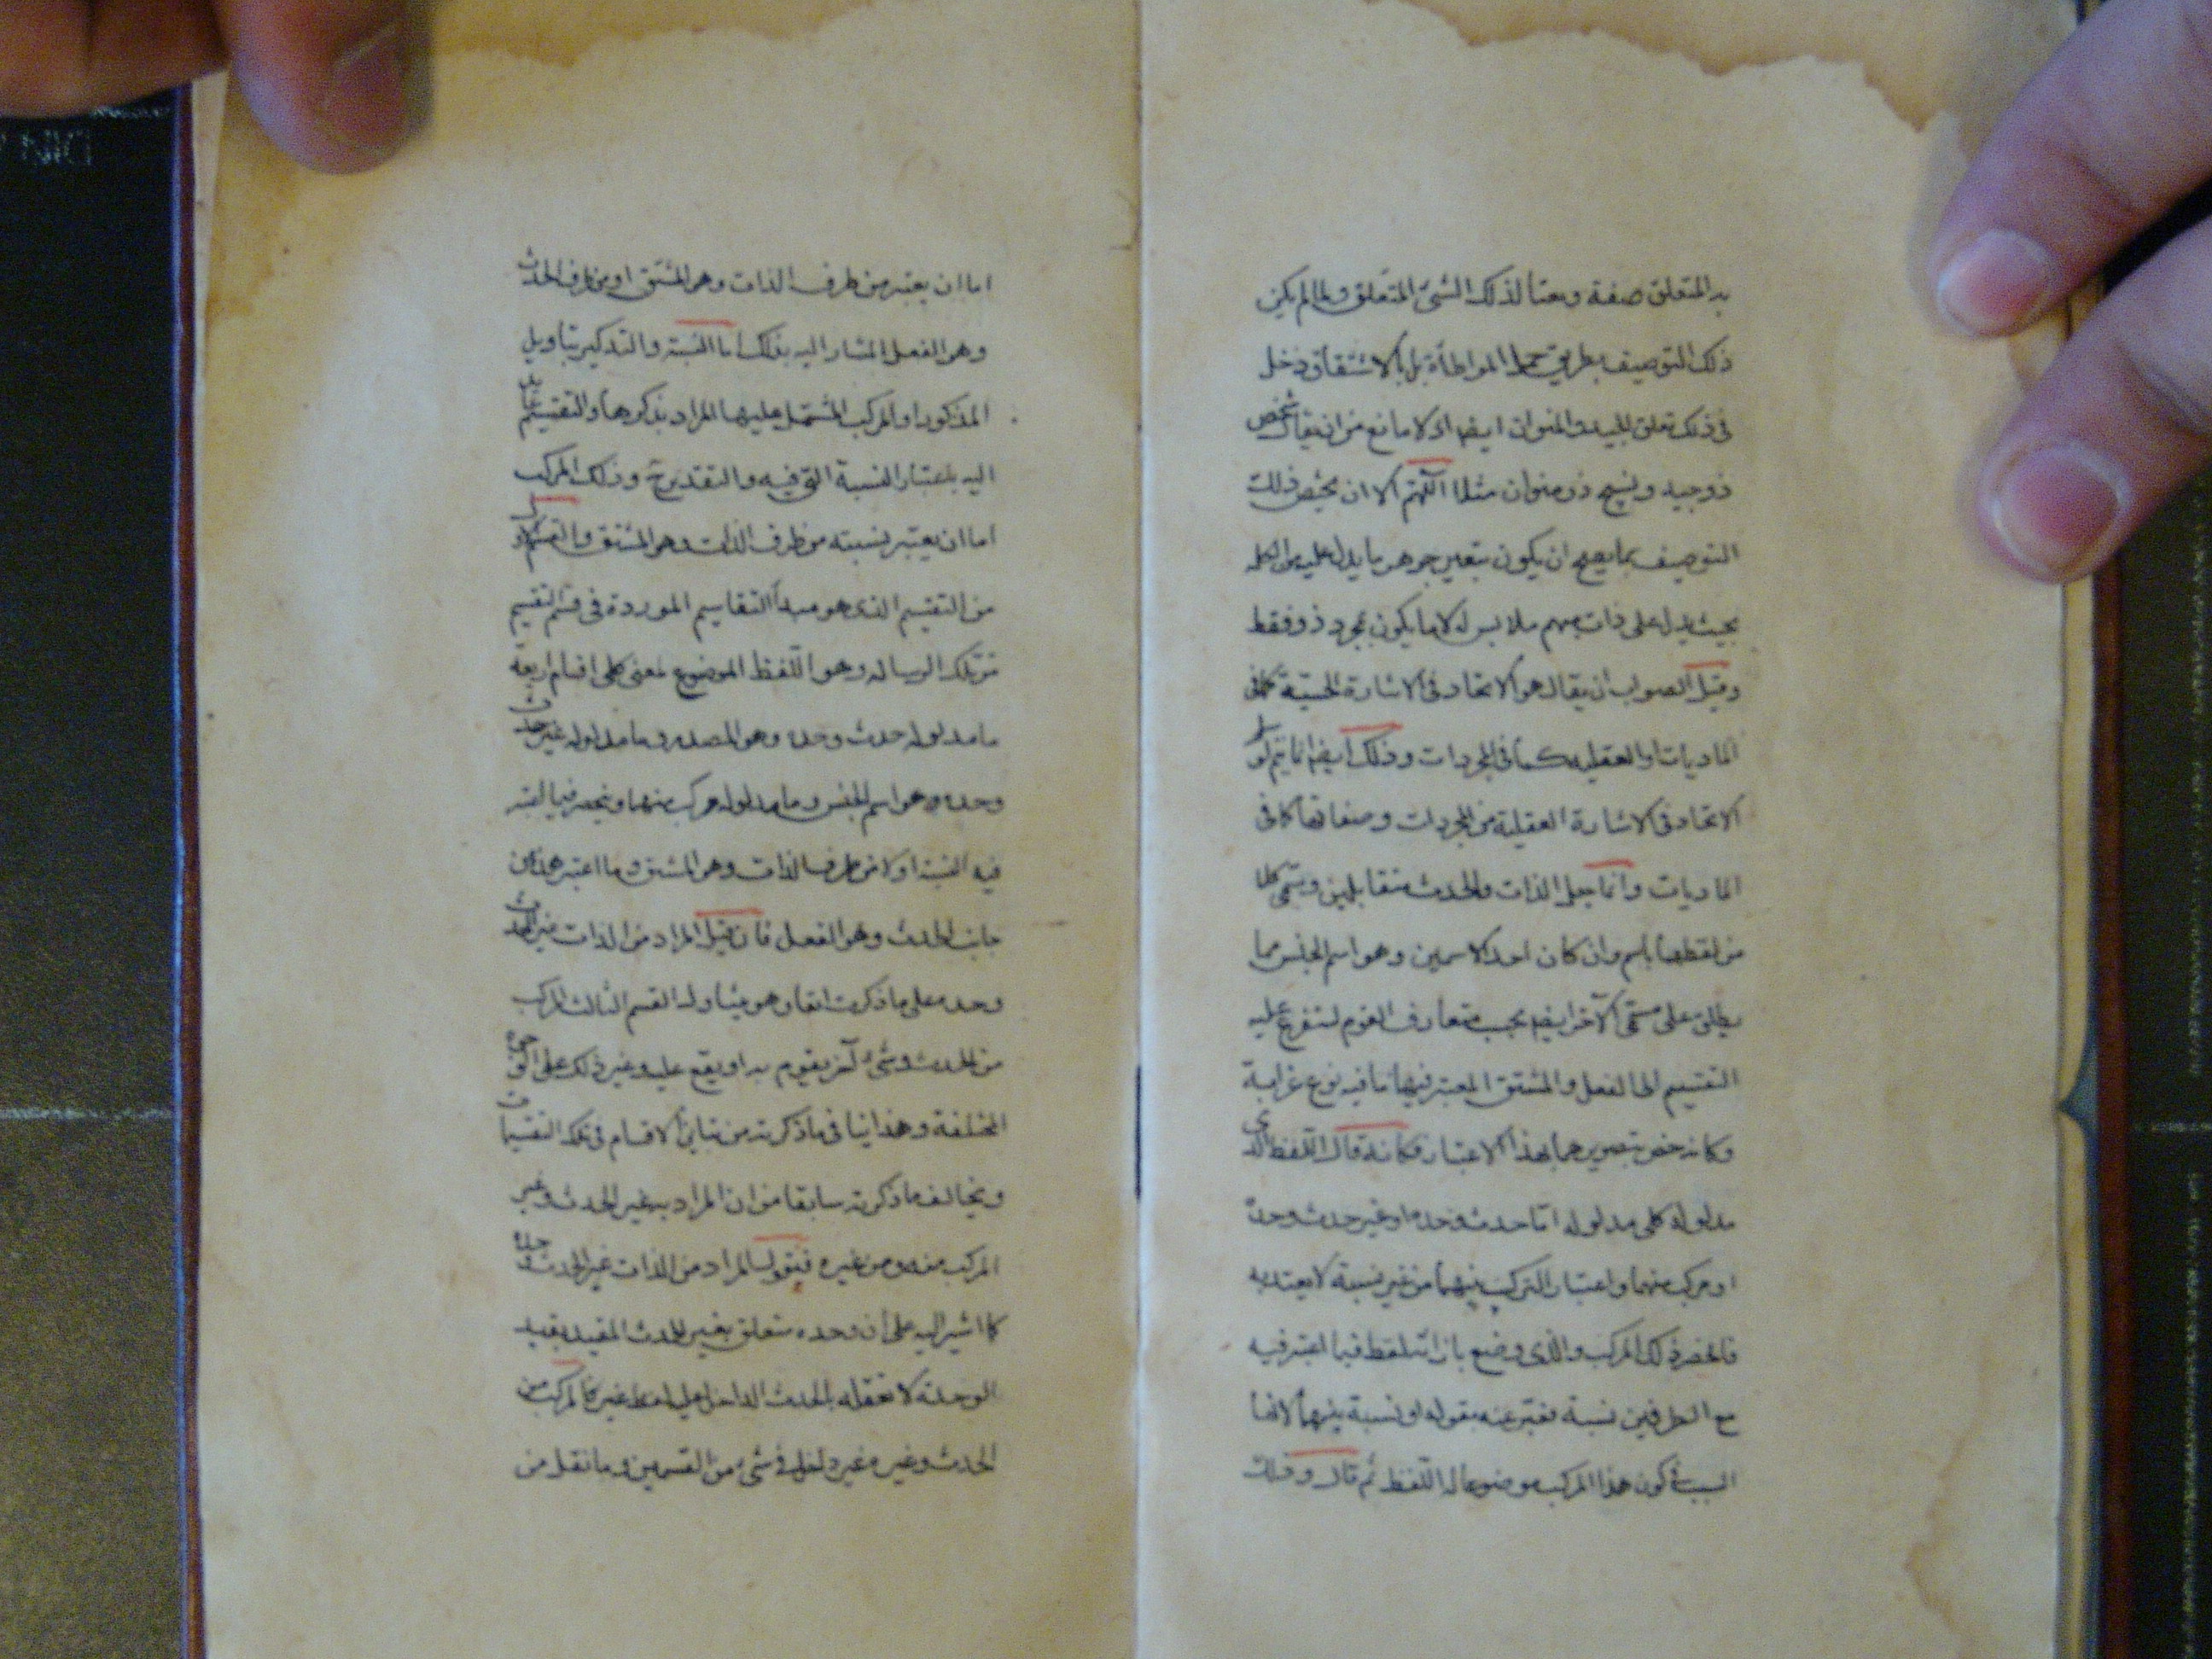 به المتعلق صفة ونعتا لذلك الشئ المتعلق ولما لم يكن
ذلك التوصيف بطريق حمل المواطاة بل بالاشتقاق دخل
فى ذلك تعلق الجيد والمنوان ايضا اذ لا مانع من ان يقال شخص
ذو جيد ونسيج ذو منوان مثلا اللهم الا ان يختص ذلك
التوصيف بما يصح ان يكون بتغيير جوهر ما يدل عليه من الكلمة
بحيث يدل على ذات مبهم ملابس له لا ما يكون بمجرد ذو فقط
وقيل الصواب ان يقال هو الاتحاد فى الاشارة الحسية كما فى
الماديات او العقلية كما فى المجردات وذلك ايضا انما يتم لو سلم
الاتحاد فى الاشارة العقلية من المجردات وصفاتها كما فى
الماديات وانما جعل الذات والحدث متقابلين وسمى كلا
من لفظهما باسم وان كان احد الاسمين وهو اسم الجنس مما
يطلق على مسمى الآخر ايضا بحسب متعارف القوم لتفرع عليه
التقسيم الى الفعل والمشتق المعتبر فيهما ما فيه نوع غرابة
وكانه خص بتصويرهما بهذا الاعتبار فكانه قال اللفظ الذى
مدلوله كلى مدلوله اما حدث وحده او غير حدث وحده
او مركب منهما واعتبار التركيب بينهما من غير نسبة لا يعتد به
فانحصر ذلك المركب والذى وضع بازائه لفظ فيما اعتبر فيه
مع الطرفين نسبة فعبر عنه بقوله او نسبة بينهما لانها
السبب فى كون هذا المركب موضوعا له اللفظ ثم قال وذلك
اما ان يعتبر من طرف الذات وهو المشتق او من طرف الحدث
وهو الفعل المشار اليه بذلك اما النسبة والتذكير بتاويل
المذكور او المركب المشتمل عليها المراد بذكرها والتقسيم عائد
اليه باعتبار النسبة التى فيه والتقدير ح وذلك المركب
اما ان يعتبر نسبته من طرف الذات وهو المشتق
من التقسيم الذى هو مبدأ التقاسيم الموردة فى قسم التقسيم
من تلك الرسالة وهو اللفظ الموضوع لمعنى كلى اقسام اربعة
ما مدلوله حدث وحده وهو المصدر وما مدلوله غير حدث
وحده وهو اسم الجنس وما مدلوله مركب منهما وينحصر فيما اعتبر
فيه النسبة اولا من طرف الذات وهو المشتق وما اعتبر هذا من
جانب الحدث وهو الفعل فان قيل المراد من الذات غير الحدث
وحده على ما ذكرت انفا وهو يتناول القسم الثالث المركب
من الحدث وشئ آخر يقوم به او يقع عليه وغير ذلك على الوجوه
المختلفة وهذا ينافى ما ذكرته من تباين الاقسام فى تلك التقسيمات
ويخالف ما ذكرته سابقا من ان المراد به غير الحدث وغير
المركب منه ومن غيره فنقول المراد من الذات غير الحدث وحده
كما اشير اليه على ان وحده متعلق بغير لا حدث المقيد بقيد
الوحدة لا تعقله بالحدث الداخل عليه لفظ غير فالمركب من
الحدث وغيره غير داخل فى شئ من القسمين وما نقل من